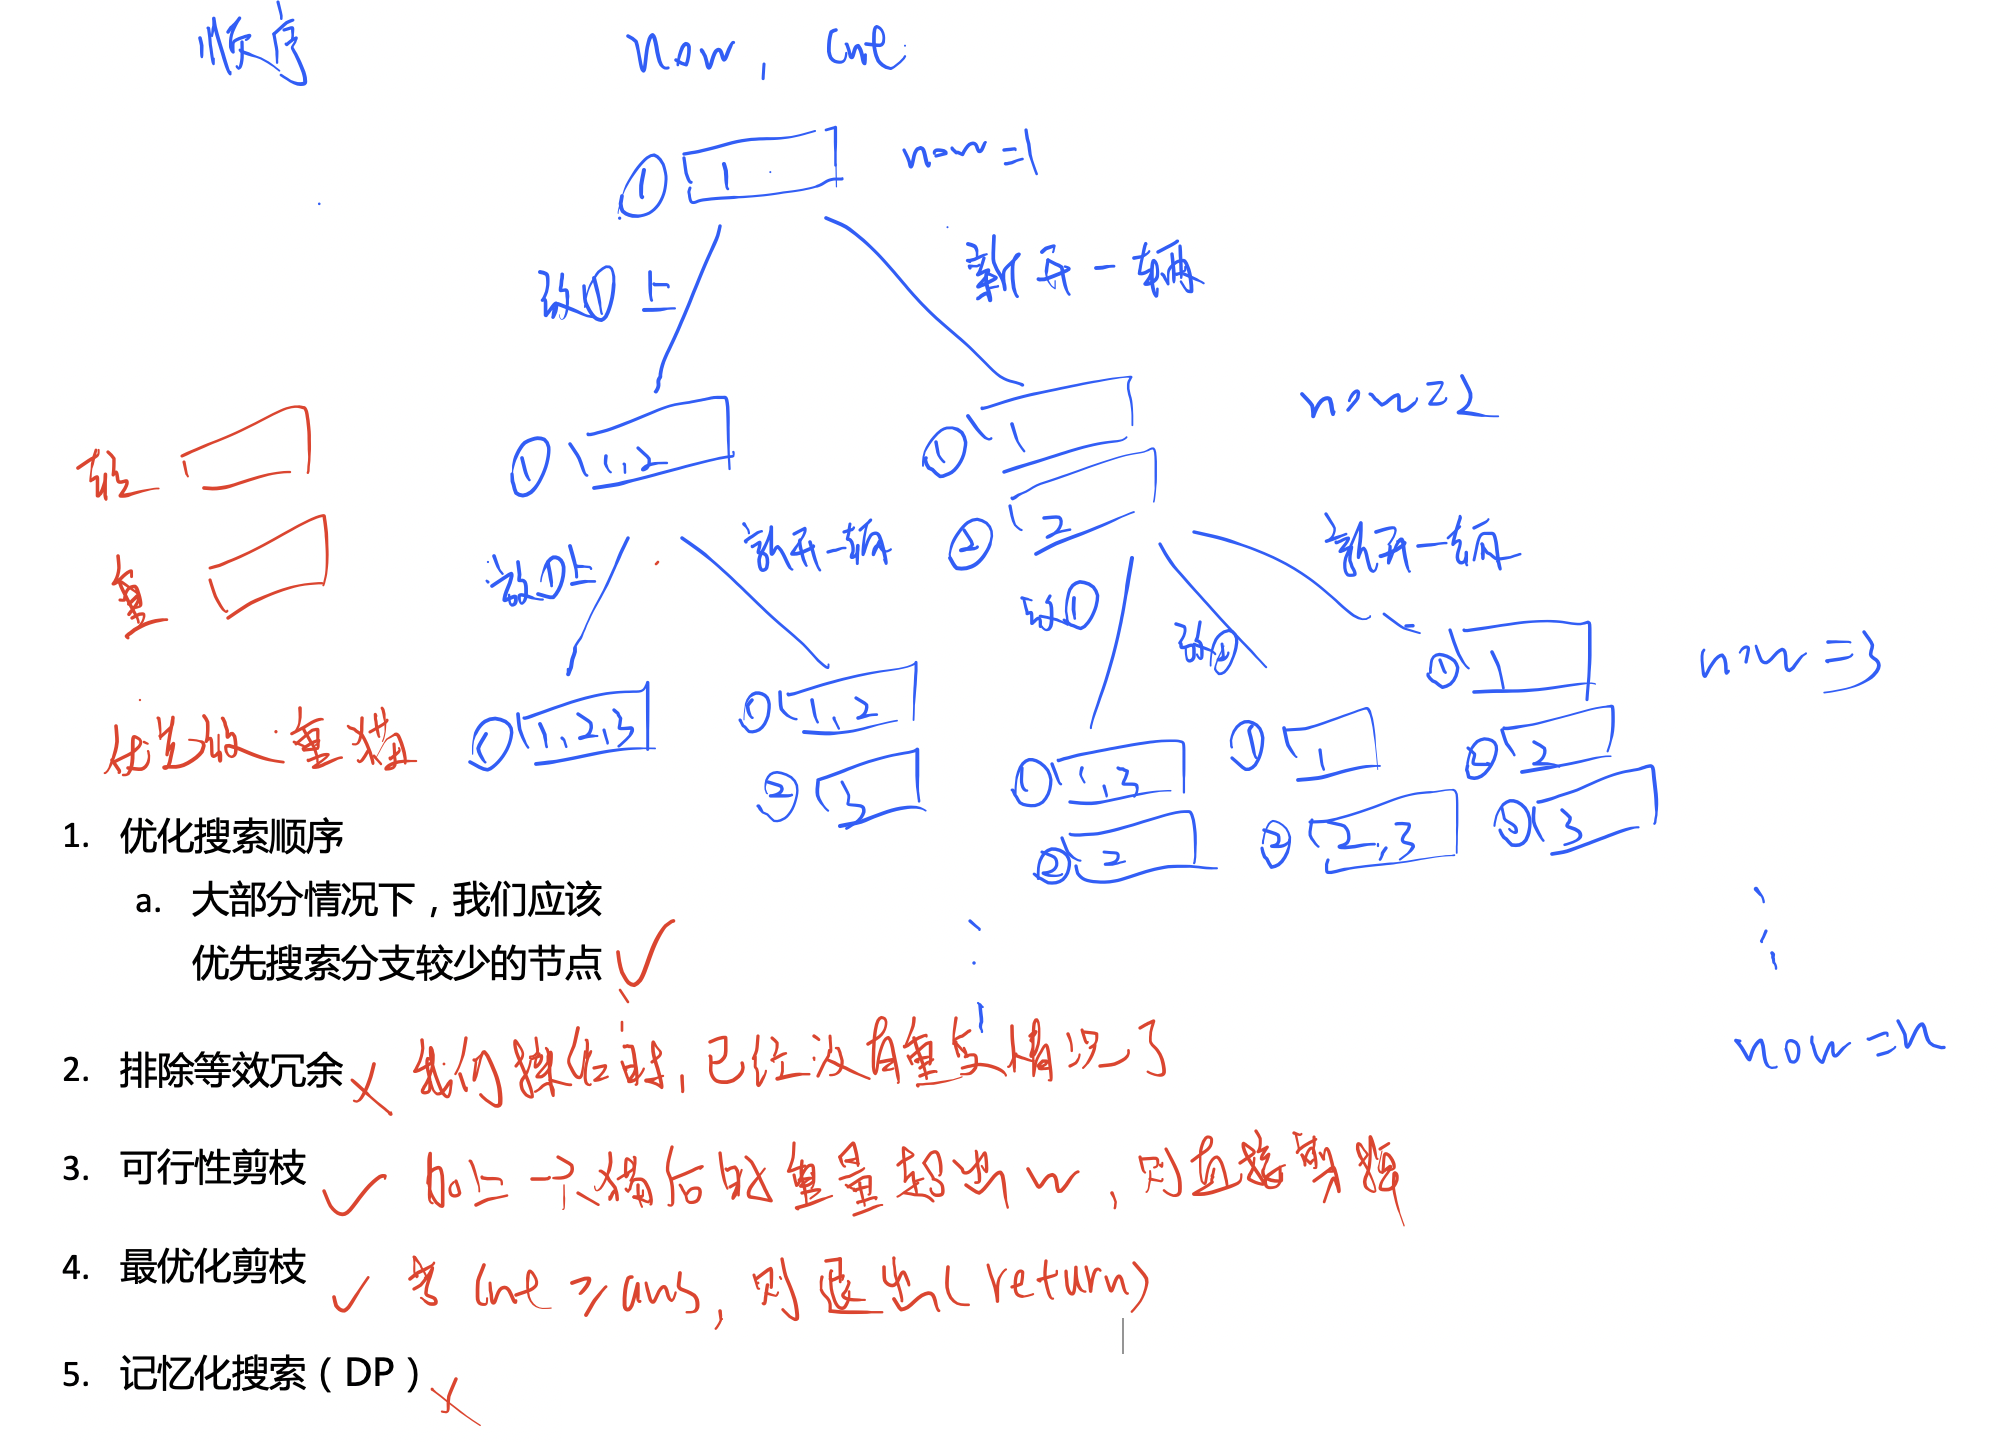 顺序
now, cnt
① 1 now=1
放①上 新开一辆
① 1,2 ① 1 now=2
② 2
放①上 新开一辆 放① 放② 新开一辆
① 1,2,3 ① 1,2 ① 1,3 ① 1 ① 1 now=3
② 3 ② 2 ② 2,3 ② 2
③ 3
now=n
轻
重
优先放重猫
1. 优化搜索顺序
a. 大部分情况下，我们应该
优先搜索分支较少的节点 ✓
2. 排除等效冗余 × 我们操作时,已经没有重复情况了
3. 可行性剪枝 ✓ 加上一只猫后的重量超出w,则直接剪掉
4. 最优化剪枝 ✓ 当 cnt ≥ ans, 则退出(return)
5. 记忆化搜索（DP） ×